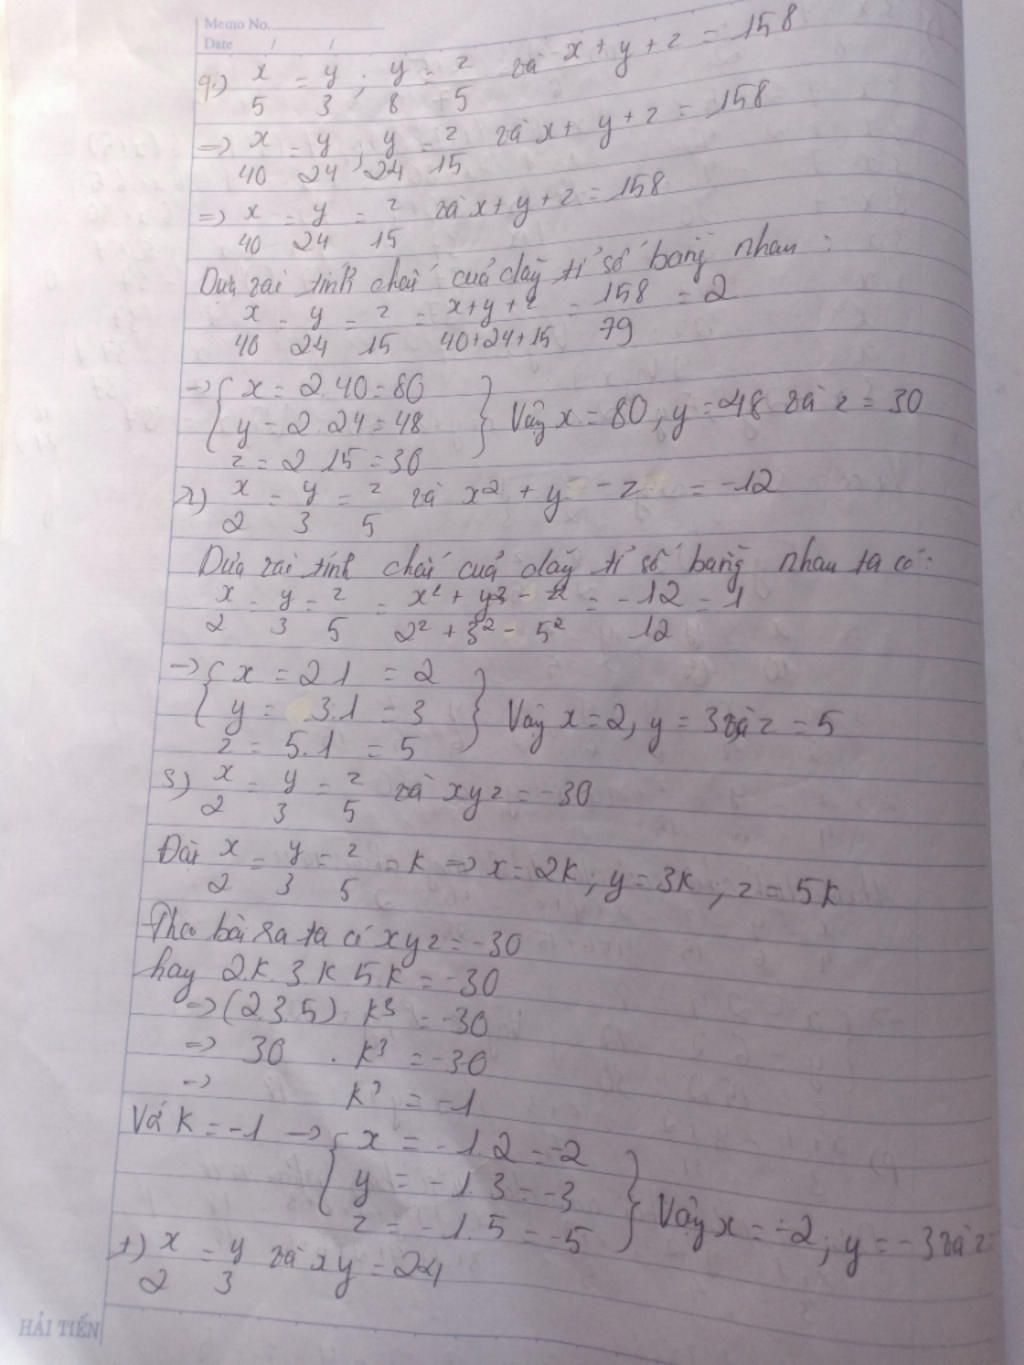 Memo No.
Date / /
q.) x/5 = y/3 ; y/8 = z/5 và x + y + z = 158
=> x/40 = y/24 ; y/24 = z/15 và x + y + z = 158
=> x/40 = y/24 = z/15 và x + y + z = 158
Dựa vài tính chất của dãy tỉ số bằng nhau :
x/40 = y/24 = z/15 = x+y+z/40+24+15 = 158/79 = 2
=> { x = 2.40 = 80
y = 2.24 = 48 } Vậy x = 80, y = 48 và z = 30
z = 2.15 = 30
r) x/2 = y/3 = z/5 và x² + y - z = -12
Dựa vài tính chất của dãy tỉ số bằng nhau ta có:
x/2 = y/3 = z/5 = x² + y2 - z/2² + 3² - 5² = -12/12 = 1
=> { x = 2.1 = 2
y = 3.1 = 3 } Vậy x = 2, y = 3 và z = 5
z = 5.1 = 5
s) x/2 = y/3 = z/5 và xyz = -30
Đặt x/2 = y/3 = z/5 = k => x = 2k ; y = 3k , z = 5k
Theo bài ra ta có xyz = -30
hay 2.k.3.k.5.k = -30
=> (2.3.5) . k³ = -30
=> 30 . k³ = -30
=> k³ = -1
Với k = -1 => { x = -1.2 = -2
y = -1.3 = -3 } Vậy x = -2, y = -3 và z
z = -1.5 = -5
t) x/2 = y/3 và xy = 24
HẢI TIẾN